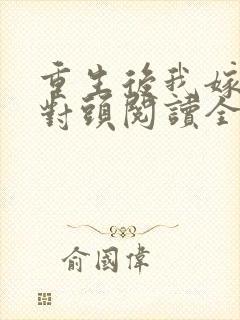 重生後我嫁
對頭閱讀全
俞國偉